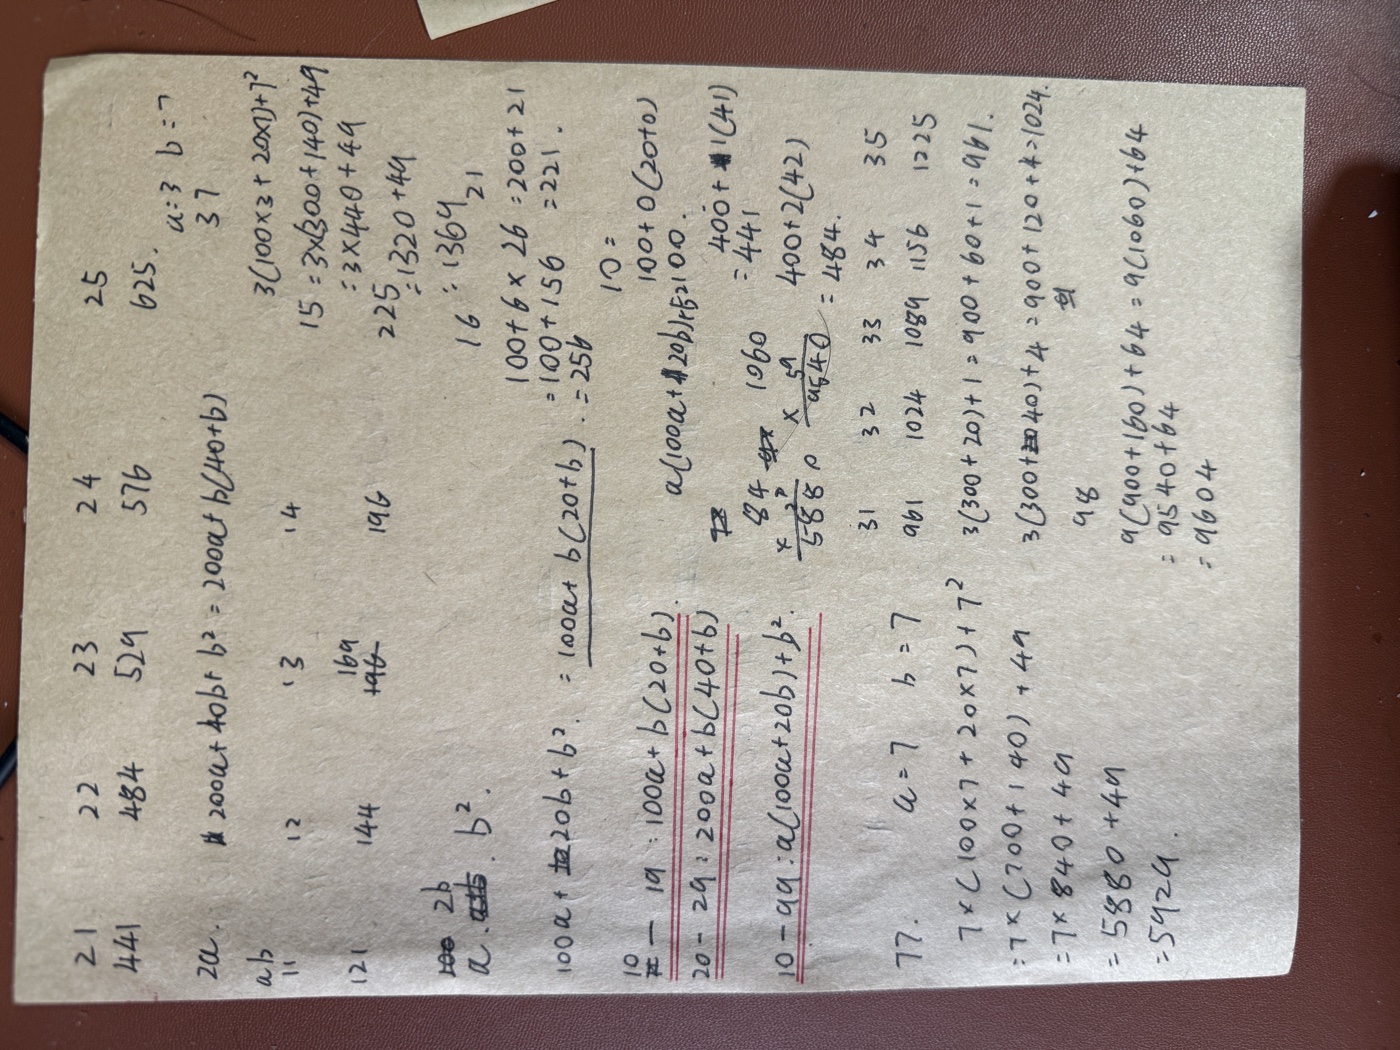 21 22 23 24 25
441 484 529 576 625.
2a. 200a+40b+b² = 200a+b(40+b)
a=3 b=7
37
ab
11 12 13 14 15
121 144 169 196 225
196
3(100×3+20×7)+7²
=3×(300+140)+49
=3×440+49
=1320+49
=1369
100 2b
a. b².
16 : 21
100+6×26 =200+21
=100+156 =221.
=256
100a+20b+b². =100a+b(20+b).
10-19:100a+b(20+b).
20-29:200a+b(40+b)
10-99:a(100a+20b)+b².
10=
100+0(20+0)
a(100a+20b)+b²
100.
400+1(41)
=441
400+2(42)
=484.
84
×
5880
1060
× 9
9540
31 32 33 34 35
961 1024 1089 1156 1225
77. a=7 b=7
7×(100×7+20×7)+7²
=7×(700+140)+49
=7×840+49
=5880+49
=5929.
3(300+20)+1=900+60+1=961.
3(300+40)+4=900+120+4=1024.
98
9(900+160)+64=9(1060)+64
=9540+64
=9604